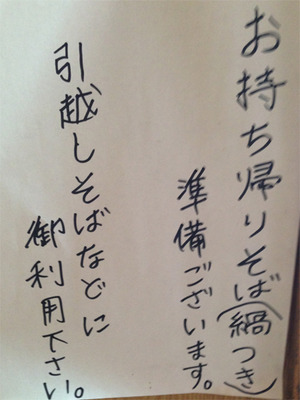 お持ち帰りそば(鍋つき)
準備ございます。
引越しそばなどに
御利用下さい。